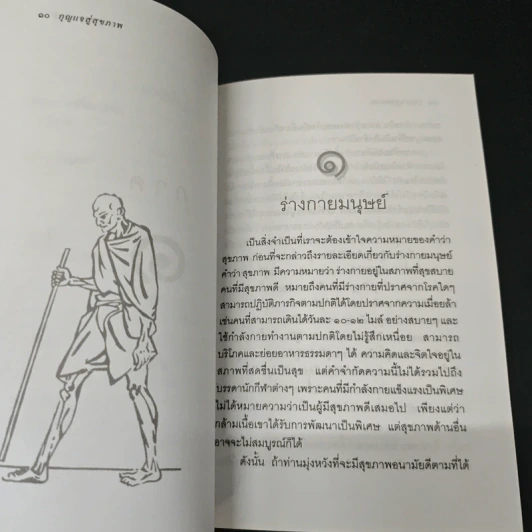 ๑๐ กุญแจสู่สุขภาพ
๑
ร่างกายมนุษย์
เป็นสิ่งจำเป็นที่เราจะต้องเข้าใจความหมายของคำว่า
สุขภาพ ก่อนที่จะกล่าวถึงรายละเอียดเกี่ยวกับร่างกายมนุษย์
คำว่า สุขภาพ มีความหมายว่า ร่างกายอยู่ในสภาพที่สุขสบาย
คนที่มีสุขภาพดี หมายถึงคนที่มีร่างกายที่ปราศจากโรคใดๆ
สามารถปฏิบัติภารกิจตามปกติได้โดยปราศจากความเมื่อยล้า
เช่นคนที่สามารถเดินได้วันละ ๑๐-๑๒ ไมล์ อย่างสบายๆ และ
ใช้กำลังกายทำงานตามปกติโดยไม่รู้สึกเหนื่อย สามารถ
บริโภคและย่อยอาหารธรรมดาๆ ได้ ความคิดและจิตใจอยู่ใน
สภาพที่สดชื่นเป็นสุข แต่คำจำกัดความนี้ไม่ได้รวมไปถึง
บรรดานักกีฬาต่างๆ เพราะคนที่มีกำลังกายแข็งแรงเป็นพิเศษ
ไม่ได้หมายความว่าเป็นผู้มีสุขภาพดีเสมอไป เพียงแต่ว่า
กล้ามเนื้อเขาได้รับการพัฒนาเป็นพิเศษ แต่สุขภาพด้านอื่น
อาจจะไม่สมบูรณ์ก็ได้
ดังนั้น ถ้าท่านมุ่งหวังที่จะมีสุขภาพอนามัยดีตามที่ได้